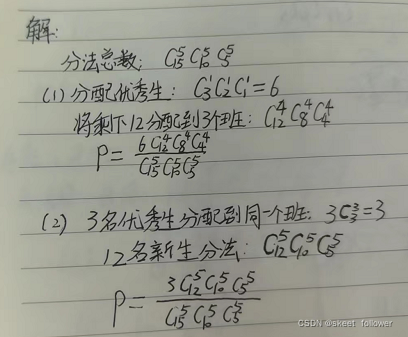 解:
分法总数: C₁₅⁵ C₁₀⁵ C₅⁵
(1) 分配优秀生: C₃¹C₂¹C₁¹=6
将剩下12分配到3个班: C₁₂⁴ C₈⁴ C₄⁴
P = 6C₁₂⁴C₈⁴C₄⁴ / C₁₅⁵C₁₀⁵C₅⁵
(2) 3名优秀生分配到同一个班: 3C₃³=3
12名新生分法: C₁₂⁵C₁₀⁵C₅⁵
P = 3C₁₂⁵C₁₀⁵C₅⁵ / C₁₅⁵C₁₀⁵C₅⁵
CSDN @skeet_follower